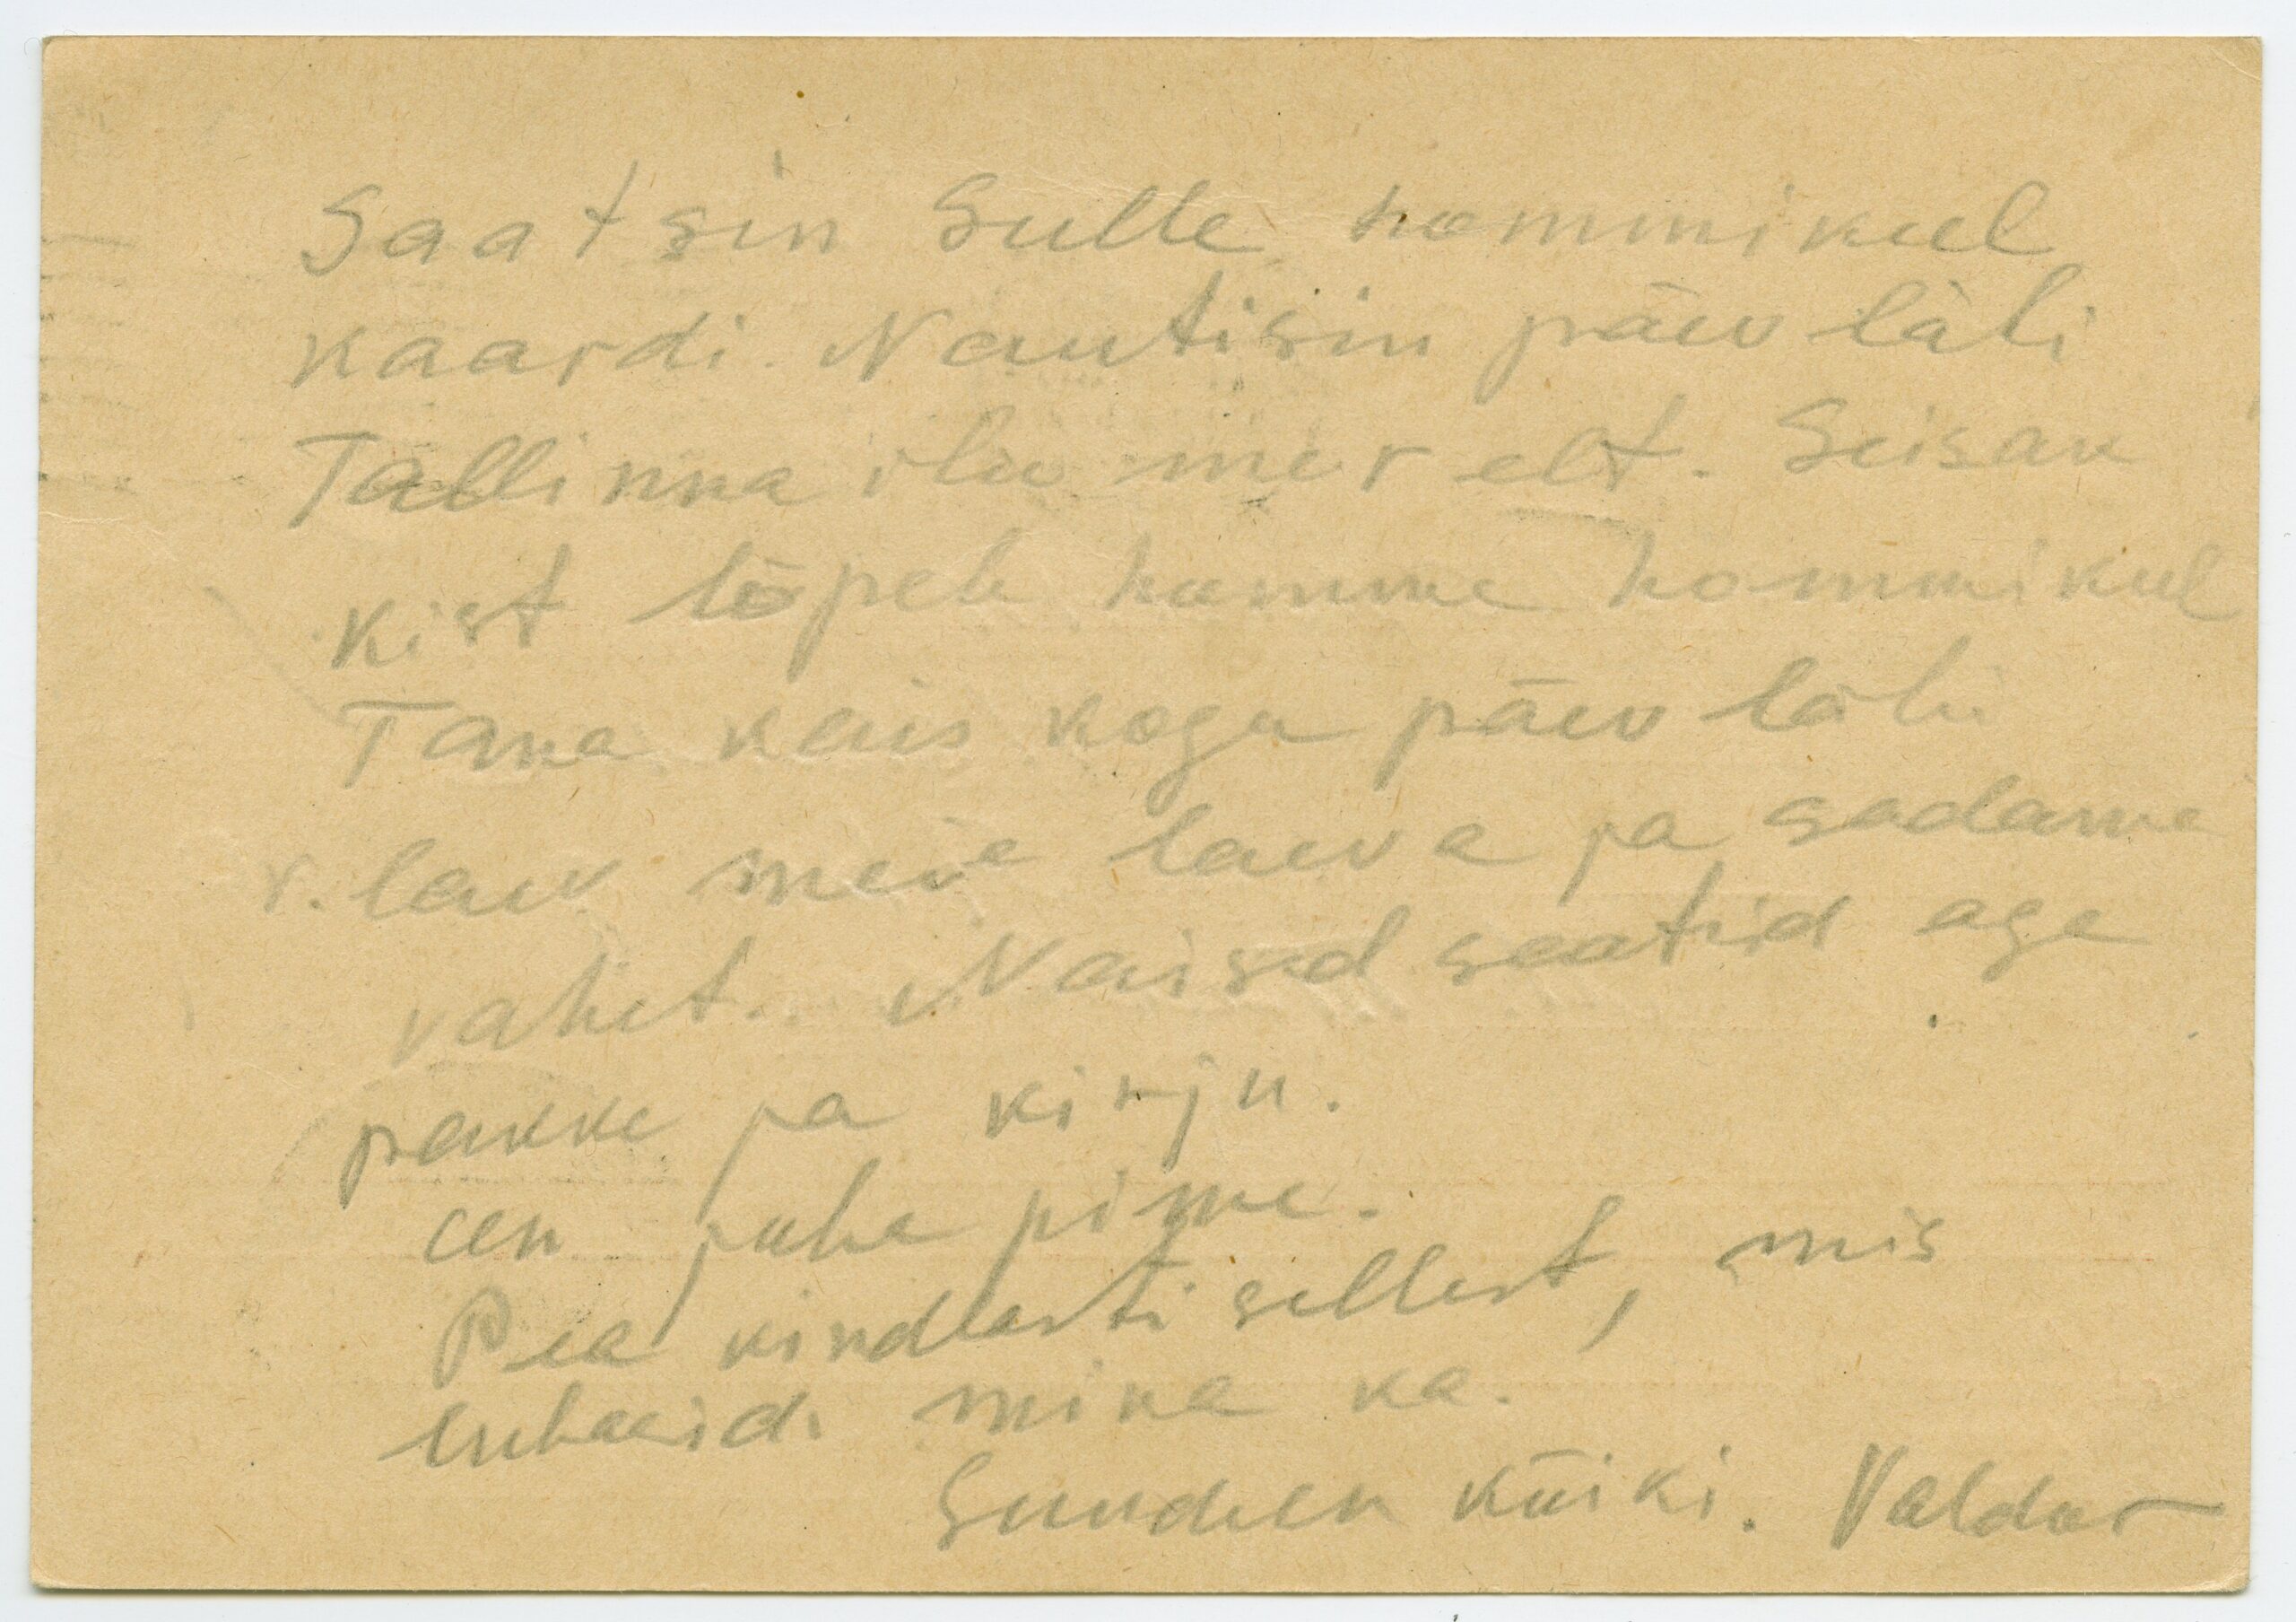 Saatsin Sulle hommikul
kaardi. Nautisin päev läbi
Tallinna ilu merelt. Seisak
kist lõpeb homme hommikul
Täna käis kogu päev läbi
v. laev meie laeva ja sadama
vahet. Naised saatsid aga
pakke ja kirju.
On juba pime.
Pea kindlasti sellest, mis
lubasid. mina ka.
Suudlen kõiki. Valdur